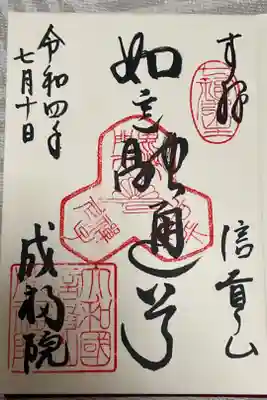 奉拝
信貴山
如意融通尊
令和四年
七月十日
成福院
大和國